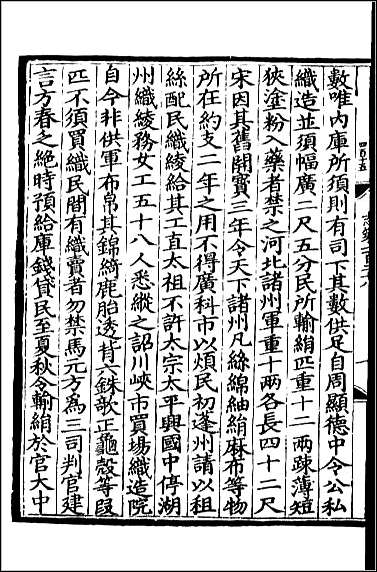 數唯内庫所須則有司下其數供足自周顯德中令公私
織造並須幅廣二尺五分民所輸絹匹重十二兩疎薄短
狹塗粉入藥者禁之河北諸州軍重十兩各長四十二尺
宋因其舊開寶三年令天下諸州凡絲綿紬絹麻布等物
所在約支二年之用不得廣科市以煩民初蓬州請以租
絲配民織綾給其工直太祖不許太宗太平興國中停湖
州織綾務女工五十八人悉縱之詔川峽市買場織造院
自今非供軍布帛其錦綺鹿胎透背六銖欹正龜殼等叚
匹不須買織民間有織賣者勿禁馬元方為三司判官建
言方春之絶時預給庫錢貸民至夏秋令輸絹於官大中